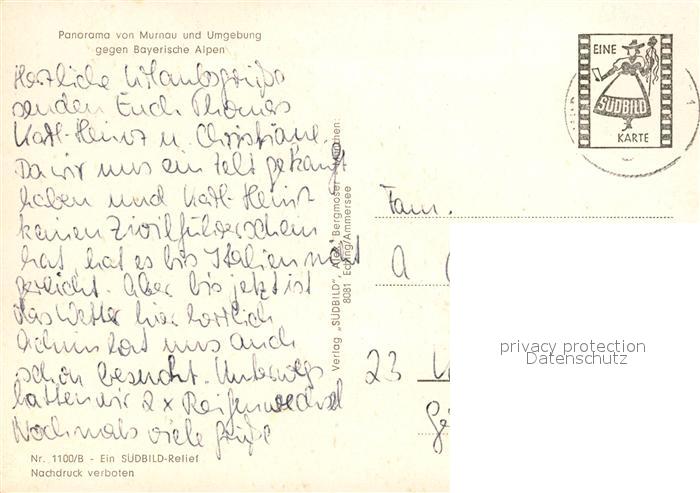 Panorama von Murnau und Umgebung
gegen Bayerische Alpen
Herzliche Urlaubsgrüße
senden Euch Thomas
Karl-Heinz u. Christiane.
Da wir uns ein Zelt gekauft
haben und Karl-Heinz
keinen Zivilführerschein
hat, hat es bis Italien nicht
gereicht. Aber bis jetzt ist
das Wetter hier herrlich
Achim hat uns auch
schon besucht. Unterwegs
hatten wir 2x Reifenwechsel
Nochmals viele Grüße
Nr. 1100/B - Ein SÜDBILD-Relief
Nachdruck verboten
Verlag „SÜDBILD", Bergmoser München:
8081 Eching/Ammersee
EINE
SÜDBILD
KARTE
Fam.
A
23
privacy protection
Datenschutz